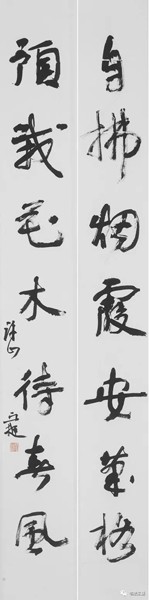 自拂烟霞安筆格
預栽花木待春風